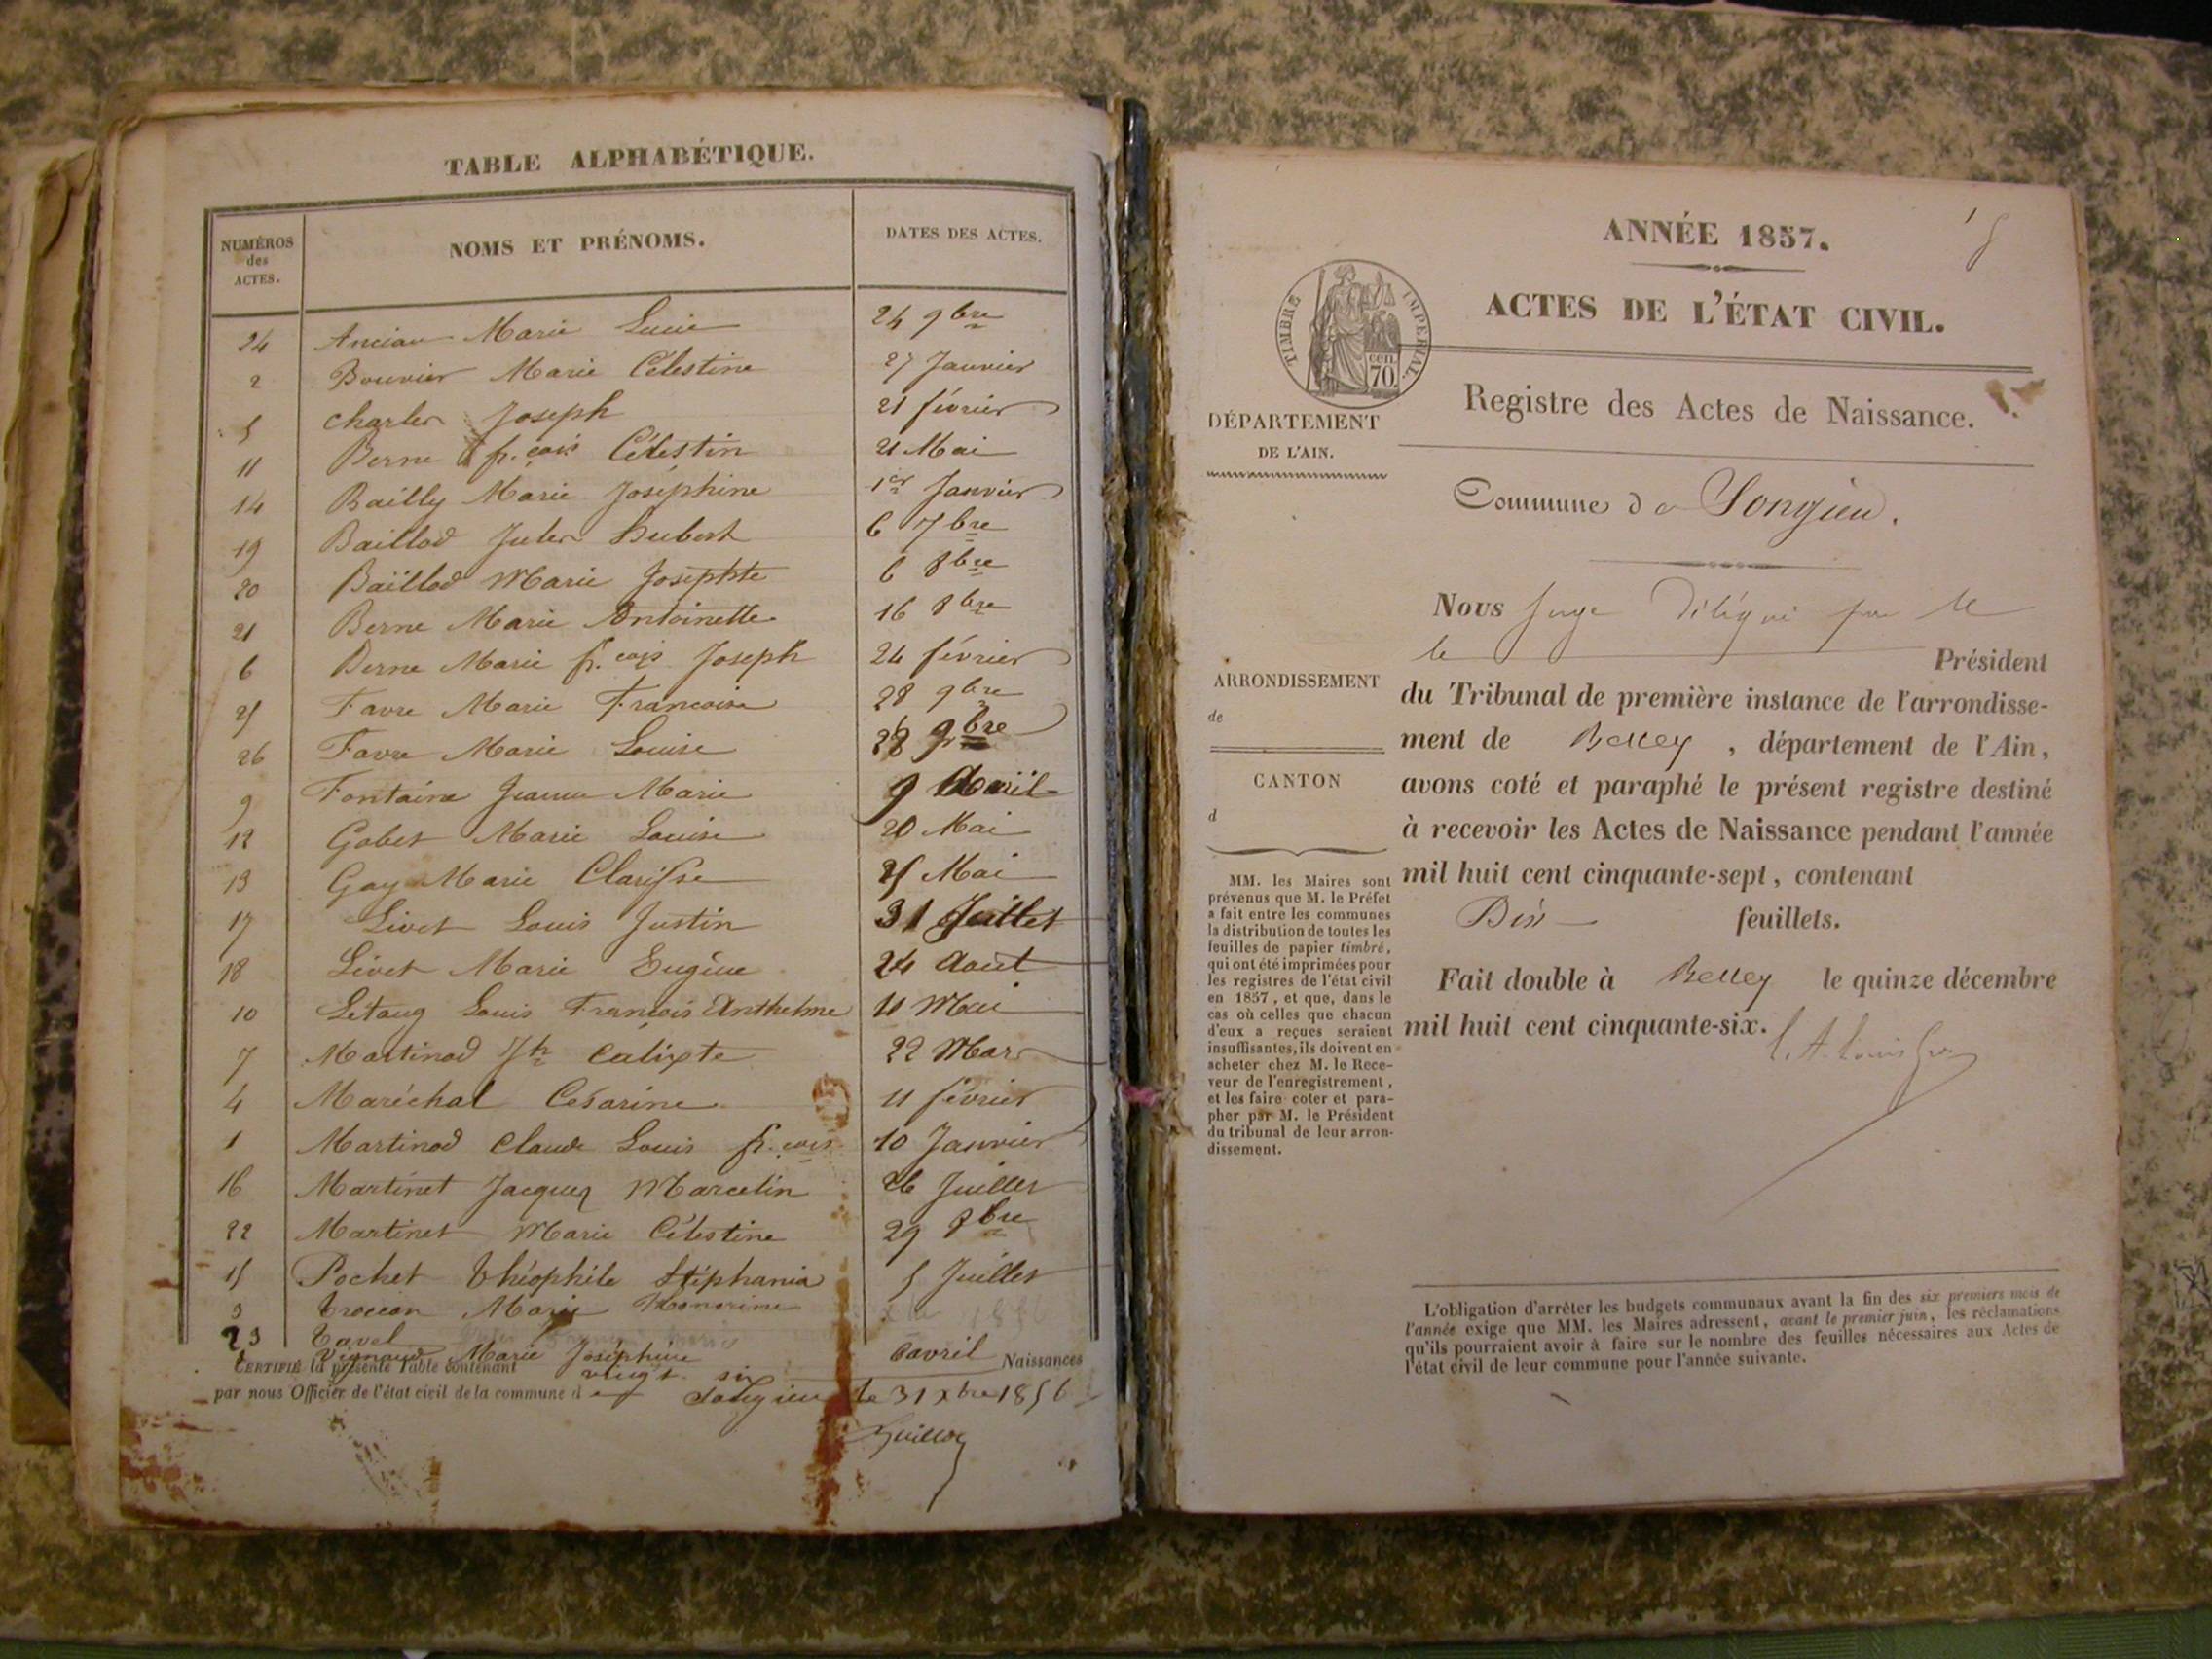 TABLE ALPHABÉTIQUE.
NUMÉROS des ACTES. NOMS ET PRÉNOMS. DATES DES ACTES.
24 Ancian Marie Lucie 24 9bre
2 Bouvier Marie Célestine 27 Janvier
5 Charles Joseph 21 février
11 Berne fr.çois Célestin 21 Mai
14 Bailly Marie Joséphine 1er Janvier
19 Baillod Jules Hubert 6 7bre
20 Baillod Marie Josephte 6 8bre
21 Berne Marie Antoinette 16 8bre
6 Berne Marie fr.çois Joseph 24 février
25 Favre Marie Francoise 28 9bre
26 Favre Marie Louise 28 9bre
9 Fontaine Jeanne Marie 9 Avril
12 Gobet Marie Louise 20 Mai
13 Gay Marie Clarisse 25 Mai
17 Livet Louis Justin 31 Juillet
18 Livet Marie Eugène 24 Aout
10 Létang Louis François Anthelme 11 Mai
7 Martinod Jh Calixte 22 Mars
4 Maréchal Césarine 11 février
1 Martinod Claude Louis fr.çois 10 Janvier
16 Martinet Jacques Marcelin 26 Juillet
22 Martinet Marie Célestine 29 8bre
15 Pochet Théophile Stéphania 5 Juillet
3 Troccon Marie Honorine
23 Tavel
Vignaud Marie Joséphine 6 avril
CERTIFIÉ la présente Table contenant vingt six Naissances
par nous Officier de l'état civil de la commune de Songieu le 31 xbre 1856
ANNÉE 1857.
ACTES DE L'ÉTAT CIVIL.
TIMBRE IMPERIAL.
cen. 70.
DÉPARTEMENT
DE L'AIN.
Registre des Actes de Naissance.
Commune de Songieu.
Nous Juge délégué par M
le Président
ARRONDISSEMENT
de
CANTON
d
du Tribunal de première instance de l'arrondisse-
ment de Belley, département de l'Ain,
avons coté et paraphé le présent registre destiné
à recevoir les Actes de Naissance pendant l'année
mil huit cent cinquante-sept, contenant
Dix feuillets.
Fait double à Belley le quinze décembre
mil huit cent cinquante-six.
MM. les Maires sont
prévenus que M. le Préfet
a fait entre les communes
la distribution de toutes les
feuilles de papier timbré,
qui ont été imprimées pour
les registres de l'état civil
en 1857, et que, dans le
cas où celles que chacun
d'eux a reçues seraient
insuffisantes, ils doivent en
acheter chez M. le Rece-
veur de l'enregistrement,
et les faire coter et para-
pher par M. le Président
du tribunal de leur arron-
dissement.
L'obligation d'arrêter les budgets communaux avant la fin des six premiers mois de
l'année exige que MM. les Maires adressent, avant le premier juin, les réclamations
qu'ils pourraient avoir à faire sur le nombre des feuilles nécessaires aux Actes de
l'état civil de leur commune pour l'année suivante.